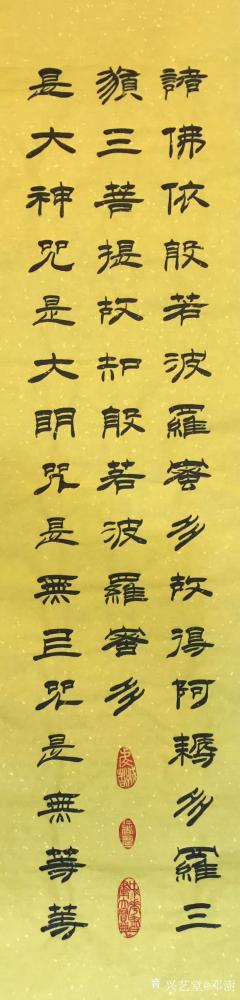 諸佛依般若波羅蜜多故得阿耨多羅三
藐三菩提故知般若波羅蜜多
是大神咒是大明咒是無上咒是無等等
兴艺堂@邓澍